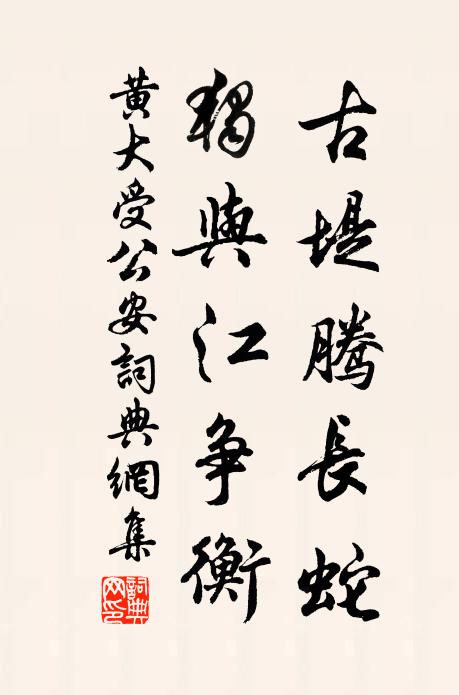 古堤騰長蛇
獨與江争衡
黄大受公安詞典網集
詞典网印